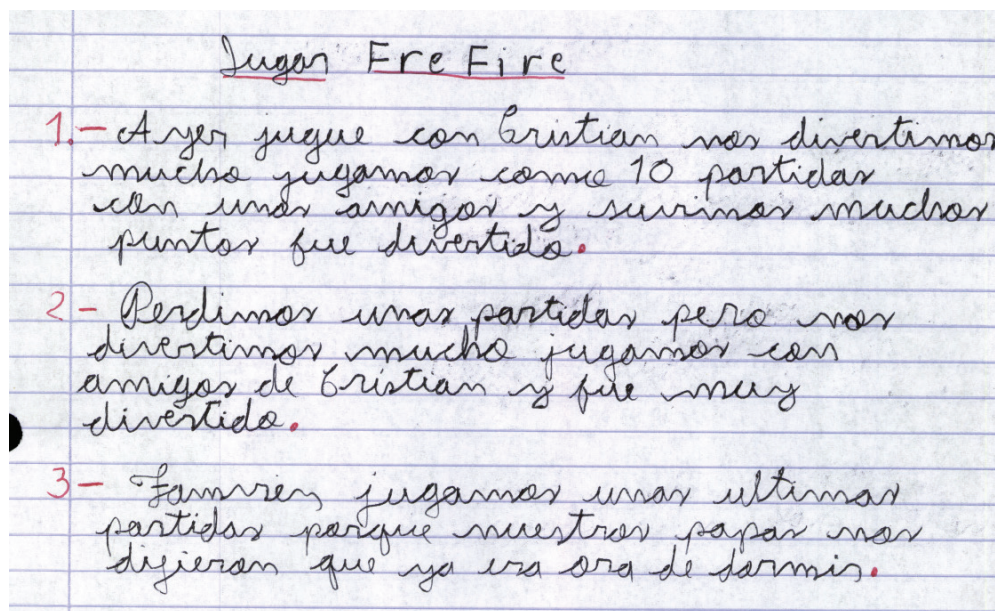 Jugar Fre Fire
1.- Ayer jugue con Cristian nos divertimos
mucho jugamos como 10 partidas
con unos amigos y suvimos muchos
puntos fue divertido.
2- Perdimos unas partidas pero nos
divertimos mucho jugamos con
amigos de Cristian y fue muy
divertido.
3- Tamvien jugamos unas ultimas
partidas porque nuestros papas nos
dijieron que ya era ora de dormir.